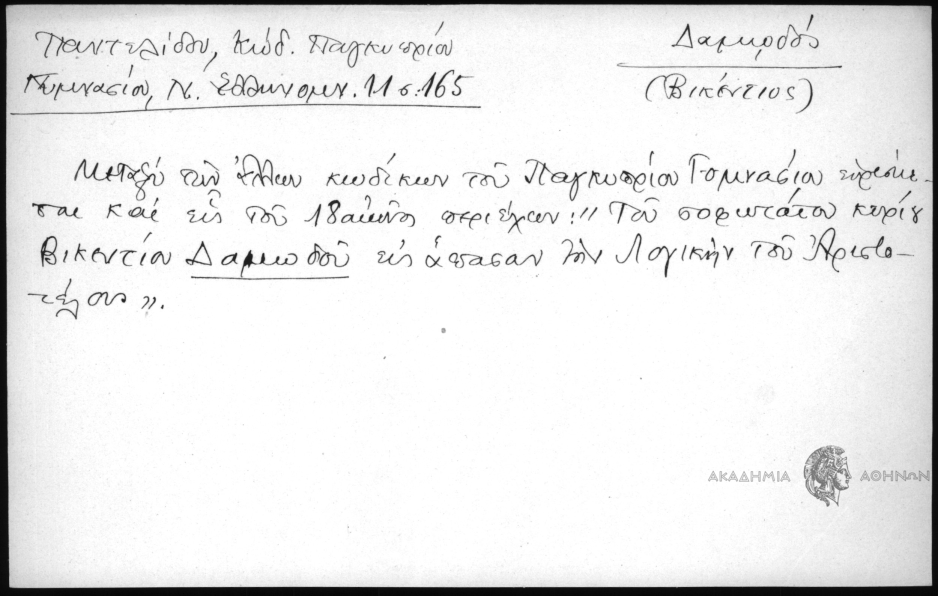 Παντελίδου, Κώδ. Παγκυπρίου
Γυμνασίου, Ν. Ἑλληνομν. 11 σ. 165
Δαμοδός
(Βικέντιος)
Μεταξύ τῶν ἄλλων κωδίκων τοῦ Παγκυπρίου Γυμνασίου εὑρίσκε-
ται καί εἷς τοῦ 18 αἰῶνος περιέχων: "Τοῦ σοφωτάτου κυρίου
Βικεντίου Δαμοδοῦ εἰς ἅπασαν τὴν Λογικὴν τοῦ Ἀριστο-
τέλους".
ΑΚΑΔΗΜΙΑ ΑΘΗΝΩΝ